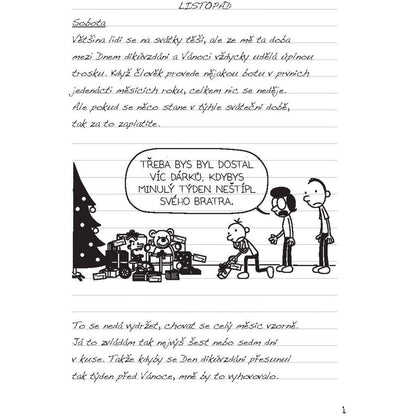 LISTOPAD
Sobota
Většina lidí se na svátky těší, ale ze mě ta doba
mezi Dnem díkůvzdání a Vánoci vždycky udělá úplnou
trosku. Když člověk provede nějakou botu v prvních
jedenácti měsících roku, celkem nic se neděje.
Ale pokud se něco stane v týhle sváteční době,
tak za to zaplatíte.
TŘEBA BYS BYL DOSTAL
VÍC DÁRKŮ, KDYBYS
MINULÝ TÝDEN NEŠTÍPL
SVÉHO BRATRA.
To se nedá vydržet, chovat se celý měsíc vzorně.
Já to zvládám tak nejvýš šest nebo sedm dní
v kuse. Takže kdyby se Den díkůvzdání přesunul
tak týden před Vánoce, mně by to vyhovovalo.
1